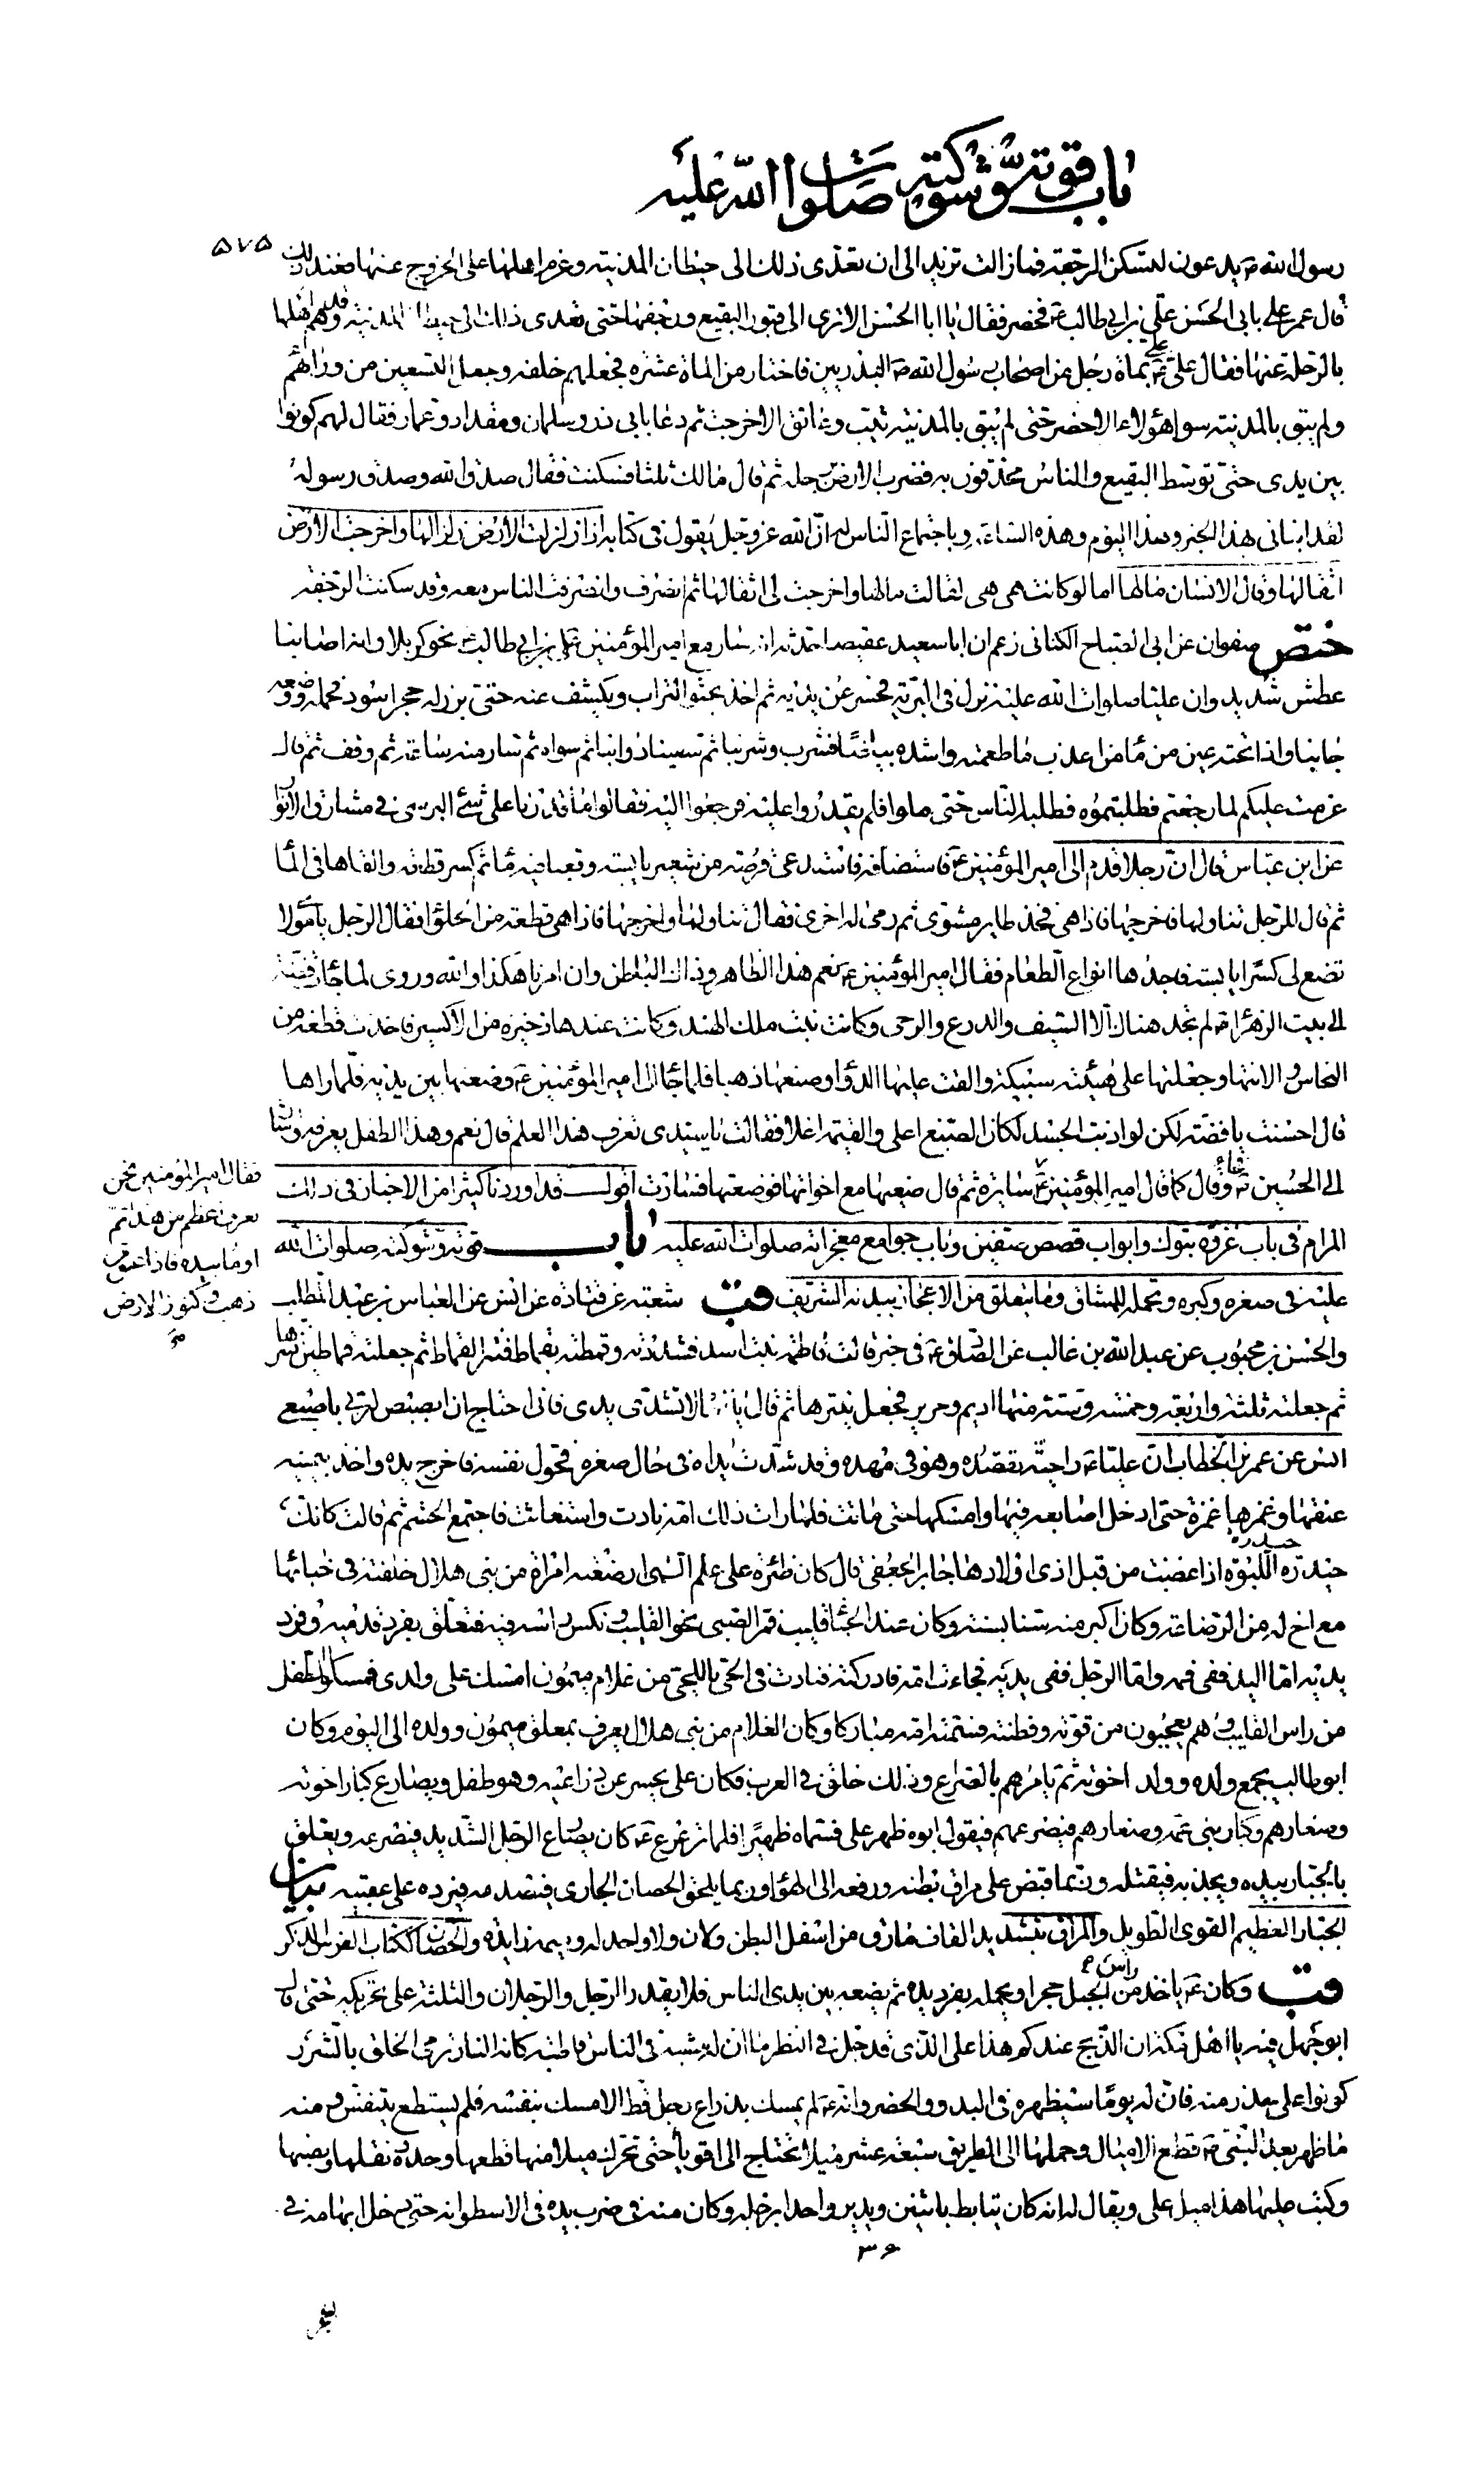 باب قوته وشوكته صلوات الله عليه
٥٧٥
رسول الله ص يدعون لتسكن الرجفة فما زالت تزيد الى ان تعدى ذلك الى حيطان المدينة وعزم اهلها على الخروج عنها فعند ذلك
قال عمر على بابى الحسن على بن ابى طالب ع فحضر فقال يا ابا الحسن الا ترى الى قبور البقيع ورجفها حتى تعدى ذلك الى حيطان المدينة وقد هم اهلها
بالرحلة عنها فقال على ع على بماة رجل من اصحاب رسول الله ص البدريين فاختار من الماة عشرة فجعلهم خلفه وجعل التسعين من ورائهم
ولم يبق بالمدينة سوا هؤلاء الا حضر حتى لم يبق بالمدينة ثيب وعاتق الا خرجت ثم دعا بابى ذر وسلمان ومقداد وعمار فقال لهم كونوا
بين يدى حتى توسط البقيع والناس محدقون به فضرب الارض برجله ثم قال مالك ثلثا فسكنت فقال صدق الله وصدق رسوله
لقد انبانى بهذا الخبر وهذا اليوم وهذه الساعة وباجتماع الناس له ان الله عز وجل يقول فى كتابه اذا زلزلت الارض زلزالها واخرجت الارض
اثقالها وقال الانسان مالها اما لو كانت هى هى لقالت مالها واخرجت لى اثقالها ثم انصرف وانصرفت الناس معه وقد سكنت الرجفة
ختص صفوان عن ابى الصباح الكنانى زعم ان ابا سعيد عقيصا حدثه انه سار مع امير المؤمنين على بن ابى طالب ع نحو كربلا وانه اصابنا
عطش شديد وان عليا صلوات الله عليه نزل فى البرية فحسر عن يديه ثم اخذ يحثو التراب ويكشف عنه حتى برز له حجر اسود فحمله ووضعه
جانبا واذا تحته عين من ماء من اعذب ما طعمته واشده بياضا فشرب وشربنا ثم سقينا دوابنا ثم سواه ثم سار منه ساعة ثم وقف ثم قال
عزمت عليكم لما رجعتم فطلبتموه فطلبه الناس حتى ملوا فلم يقدروا عليه فرجعوا اليه فقالوا ما قدرنا على شئ البرسى فى مشارق الانوار
عن ابن عباس قال ان رجلا قدم الى امير المؤمنين ع فاستضافه فاستدعى قرصة من شعير يابسة وقعبا فيه ماء ثم كسر قطعة والقاها فى الماء
ثم قال للرجل تناولها فاخرجها فاذا هى فخذ طاير مشوى ثم رمى له اخرى فقال تناولها واخرجها فاذا هى قطعة من الحلوا فقال الرجل يا مولا
تضع لى كسرا يابسة فاجدها انواع الطعام فقال امير المؤمنين ع نعم هذا الظاهر وذاك الباطن وان امرنا هكذا والله وروى لما جاءت فضة
الى بيت الزهراء ع لم تجد هناك الا السيف والدرع والرحى وكانت بنت ملك الهند وكانت عندها ذخيرة من الاكسير فاخذت قطعة من
النحاس والانتها وجعلتها على هيئة سبيكة والقت عليها الدواء وصنعتها ذهبا فلما جاء الى امير المؤمنين ع وضعتها بين يديه فلما راها
قال احسنت يا فضة لكن لو اذبت الجسد لكان الصبغ اعلى والقيمة اغلا فقالت يا سيدى تعرف هذا العلم قال نعم وهذا الطفل يعرفه واشار
الى الحسين ع فجاء وقال كما قال امير المؤمنين ع سايرة ثم قال ضعيها مع اخواتها فوضعتها فسارت اقول قد اوردنا كثيرا من الاخبار فى ذلك
فقال امير المؤمنين نحن
نعرف اعظم من هذا ثم
اوما بيده فاذا عنق من
ذهب وكنوز الارض
صح
المرام فى باب غزوة تبوك وابواب قصص صفين وباب جوامع معجزاته صلوات الله عليه باب قوته وشوكته صلوات الله
عليه فى صغره وكبره وتحمله للمشاق وما يتعلق من الاعجاز ببدنه الشريف قب شعبة عن قتادة عن انس عن العباس بن عبد المطلب
والحسن بن محبوب عن عبد الله بن غالب عن الصادق ع فى خبر قالت فاطمة بنت اسد فشددته وقمطته بقماط فنتر القماط ثم جعلته قماطين فنترهما
ثم جعلته ثلثة واربعة وخمسة وستة منها اديم وحرير فجعل ينترها ثم قال يا امه لا تشدى يدى فانى احتاج ان ابصبص لربى باصبعى
انس عن عمر بن الخطاب ان عليا ع راى حية تقصده وهو فى مهده وقد شدت يداه فى حال صغره فحول نفسه فاخرج يده واخذ بيمينه
عنقها وغمزها غمزة حتى ادخل اصابعه فيها وامسكها حتى ماتت فلما رات ذلك امه نادت واستغاثت فاجتمع الحشم ثم قالت كانك
حيدرة حيدرة اللبوة اذا غضبت من قبل اذى اولادها جابر الجعفى قال كان ظئرة على ع التى ارضعته امراة من بنى هلال خلفته فى خبائها
مع اخ له من الرضاعة وكان اكبر منه سنا بسنة وكان عند الخباء قليب فمر الصبى نحو القليب ونكس راسه فيه فتعلق بفرد قدميه وفرد
يديه اما اليد ففى فمه واما الرجل ففى يديه فجاءت امه فادركته فنادت فى الحى يا للحى من غلام ميمون امسك على ولدى فمسكوا الطفل
من راس القليب وهم يعجبون من قوته وفطنته فسمته امه مباركا وكان الغلام من بنى هلال يعرف بمعلق ميمون وولده الى اليوم وكان
ابو طالب يجمع ولده وولد اخوته ثم يامرهم بالصراع وذلك خلق فى العرب فكان على يحسر عن ذراعيه وهو طفل ويصارع كبار اخوته
وصغارهم وكبار بنى عمه وصغارهم فيصرعهم فيقول ابوه ظهر على فسماه ظهيرا فلما ترعرع ع كان يصارع الرجل الشديد فيصرعه ويعلق
بالجبار بيده ويجذبه فيقتله وربما قبض على مراق بطنه ورفعه الى الهواء وربما يلحق الحصان الجارى فيصدمه فيرده على عقبيه بيان
الجبار العظيم القوى الطويل والمراق بتشديد القاف مارق من اسفل البطن ولان ولا واحد له وميمه زايدة والحصان ككتاب الفرس الذكر
قب وكان ع ياخذ من راس الجبل حجرا ويحمله بفرد يده ثم يضعه بين يدى الناس فلا يقدر الرجل والرجلان والثلثة على تحريكه حتى قال
ابو جهل فيه يا اهل مكة ان الذبح عندكم هذا على الذى قد جل فى النظر ما ان له مشبه فى الناس قاطبة كانه النار ترمى الخلق بالشرر
كونوا على حذر منه فان له يوما سيظهره فى البدو والحضر وانه ع لم يمسك بذراع رجل قط الا مسك بنفسه فلم يستطع يتنفس ومنه
ما ظهر بعد النبى ص قطع الاميال وحملها الى الطريق سبعة عشر ميلا تحتاج الى اقوياء حتى تحرك ميلا منها قطعها وحده ونقلها ونصبها
وكتب عليها هذا ميل على ويقال له انه كان يتابط باثنين ويدير واحدا برجله وكان منه فى ضرب يده فى الاسطوانة حتى دخل ابهامه فى
٣٦